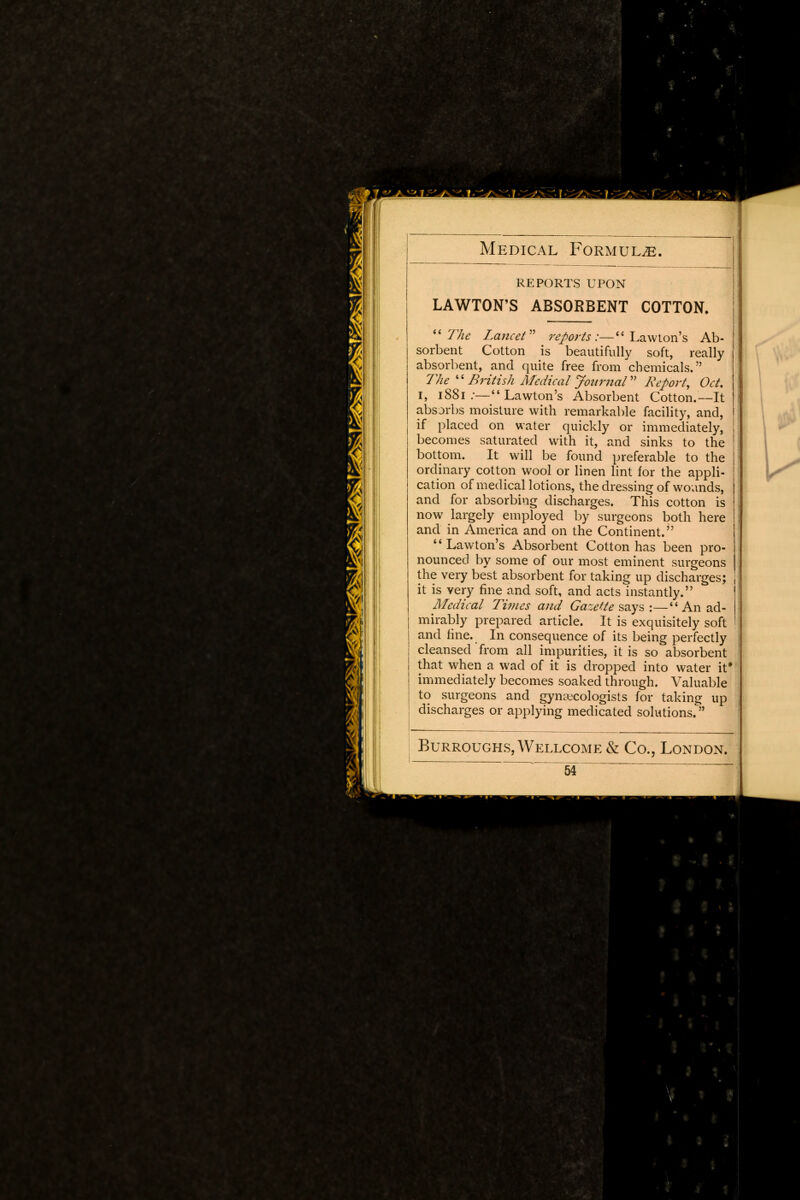 MEDICAL FORMULÆ.
REPORTS UPON
LAWTON'S ABSORBENT COTTON.
“ The Lancet” reports :—“ Lawton's Ab-
sorbent Cotton is beautifully soft, really
absorbent, and quite free from chemicals.”
The “British Medical Journal” Report, Oct.
1, 1881 :—“ Lawton's Absorbent Cotton.—It
absorbs moisture with remarkable facility, and,
if placed on water quickly or immediately,
becomes saturated with it, and sinks to the
bottom. It will be found preferable to the
ordinary cotton wool or linen lint for the appli-
cation of medical lotions, the dressing of wounds,
and for absorbing discharges. This cotton is
now largely employed by surgeons both here
and in America and on the Continent.”
“ Lawton's Absorbent Cotton has been pro-
nounced by some of our most eminent surgeons
the very best absorbent for taking up discharges;
it is very fine and soft, and acts instantly.”
Medical Times and Gazette says :—“ An ad-
mirably prepared article. It is exquisitely soft
and fine. In consequence of its being perfectly
cleansed from all impurities, it is so absorbent
that when a wad of it is dropped into water it
immediately becomes soaked through. Valuable
to surgeons and gynæcologists for taking up
discharges or applying medicated solutions.”
BURROUGHS, WELLCOME & CO., LONDON.
54